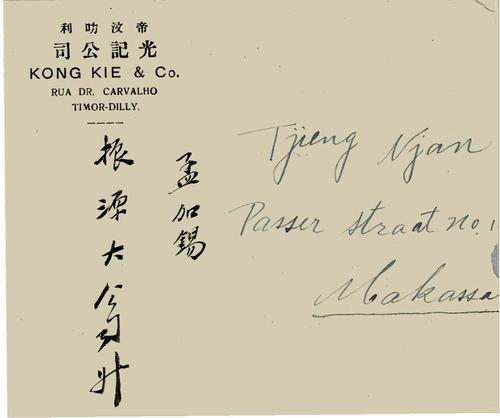 帝汶叻利
光記公司
KONG KIE & Co.
RUA DR. CARVALHO
TIMOR-DILLY.
孟加錫
振源大升
Tjieng Njan
Passer straat No. 1
Makassa